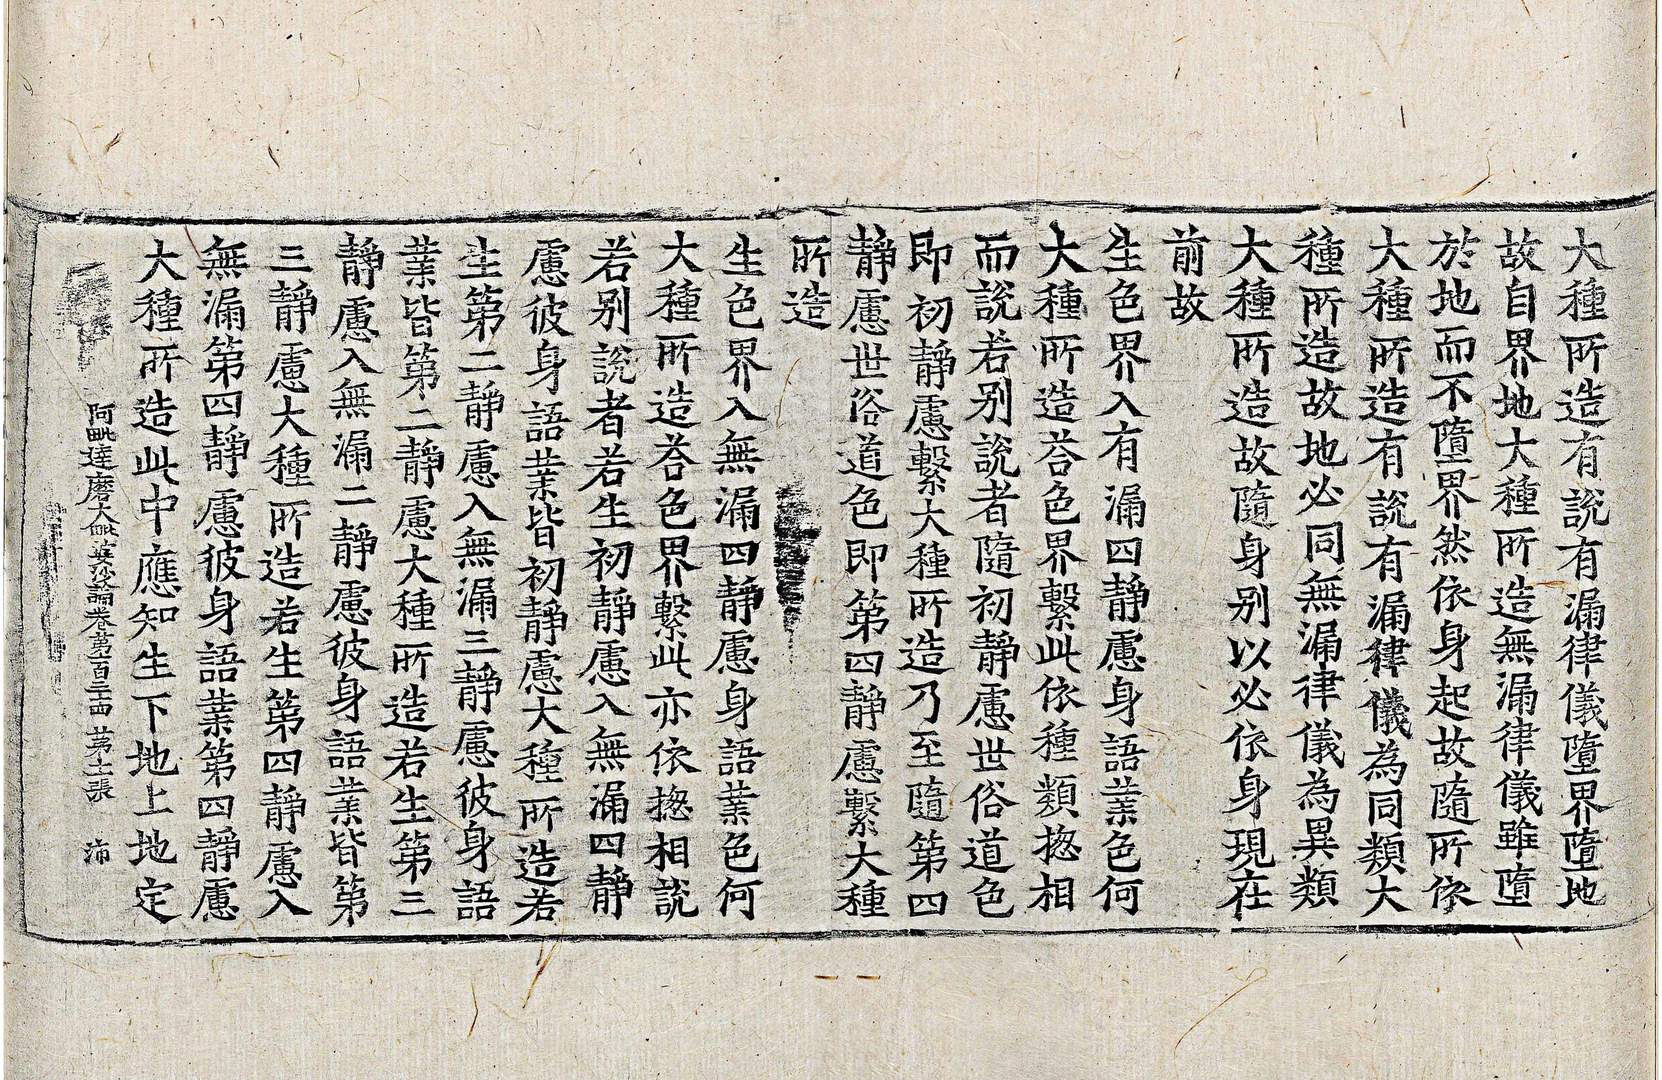 大種所造有說有漏律儀墮界墮地
故自界地大種所造無漏律儀雖墮
於地而不墮界然依身起故隨所依
大種所造有說有漏律儀為同類大
種所造故地必同無漏律儀為異類
大種所造故隨身別以必依身現在
前故
生色界入有漏四靜慮身語業色何
大種所造荅色界繫此依種類揔相
而說若别說者隨初靜慮世俗道色
即初靜慮繫大種所造乃至隨第四
靜慮世俗道色即第四靜慮繫大種
所造
生色界入無漏四靜慮身語業色何
大種所造荅色界繫此亦依揔相說
若别說者若生初靜慮入無漏四靜
慮彼身語業皆初靜慮大種所造若
生第二靜慮入無漏三靜慮彼身語
業皆第二靜慮大種所造若生第三
靜慮入無漏二靜慮彼身語業皆第
三靜慮大種所造若生第四靜慮入
無漏第四靜慮彼身語業第四靜慮
大種所造此中應知生下地上地定
阿毗達磨大毗婆沙論卷第一百三十四 第十張 沛